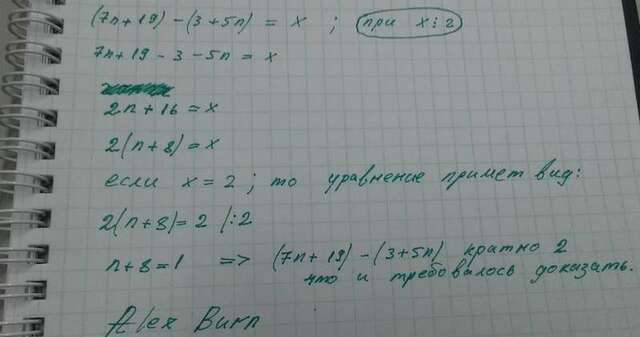 (7n+19)-(3+5n) = x ; при x⋮2
7n+19-3-5n = x
2n+16 = x
2(n+8) = x
если x = 2 ; то уравнение примет вид:
2(n+8) = 2 |:2
n+8=1 => (7n+19)-(3+5n) кратно 2
что и требовалось доказать.
Alex Burn